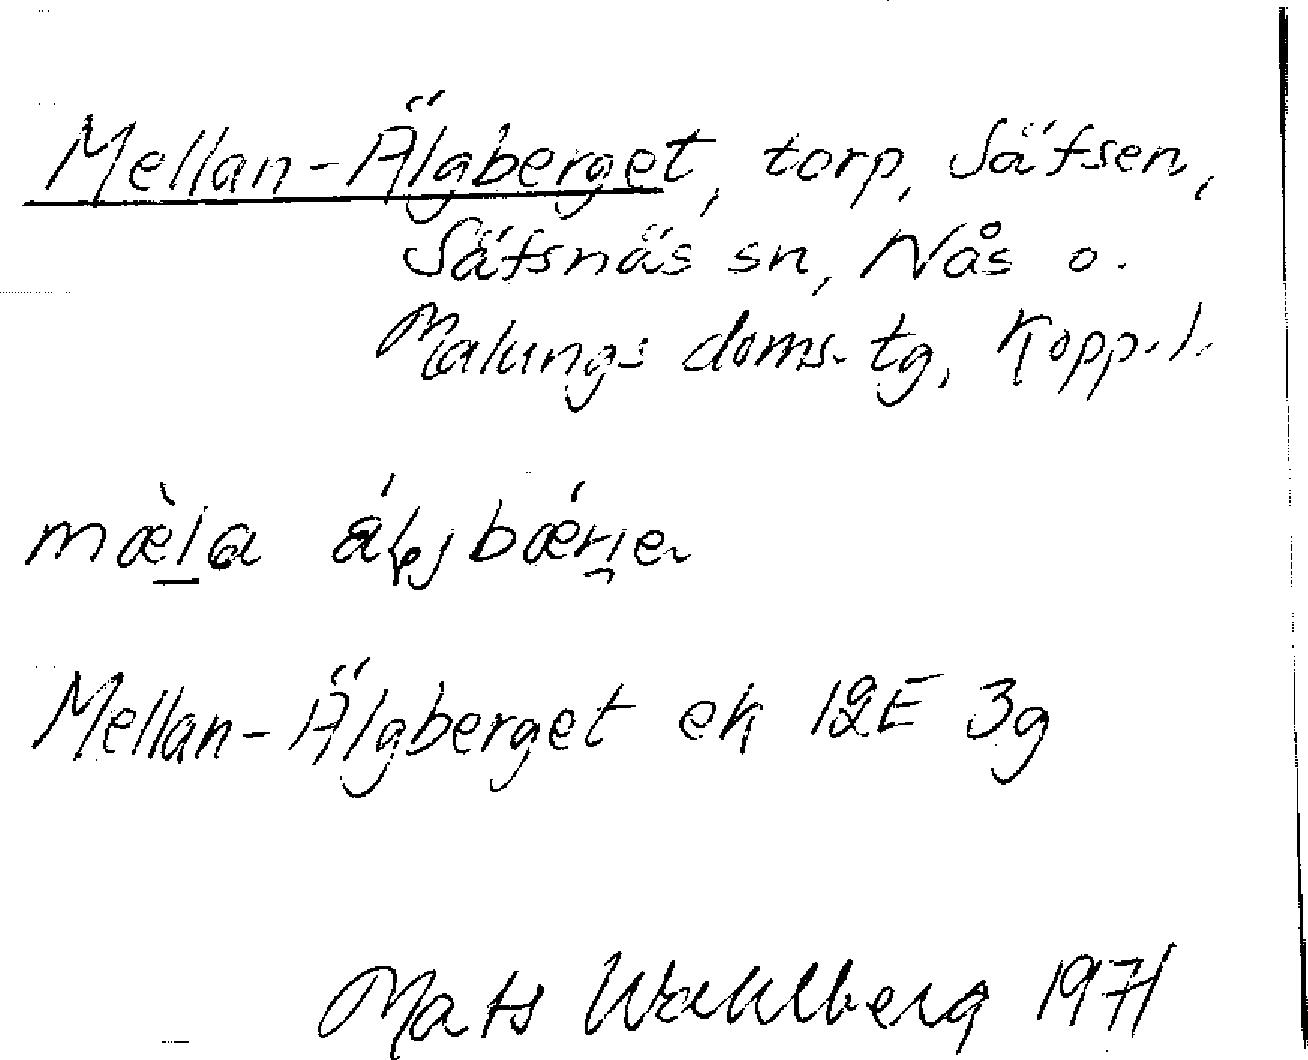 Mellan-Älgberget, torp, Säfsen,
Säfsnäs sn, Nås o.
Malungs doms. tg, Kopp. l.
Mellan-Älgberget ek 12E 3g
Mats Wahlberg 1971